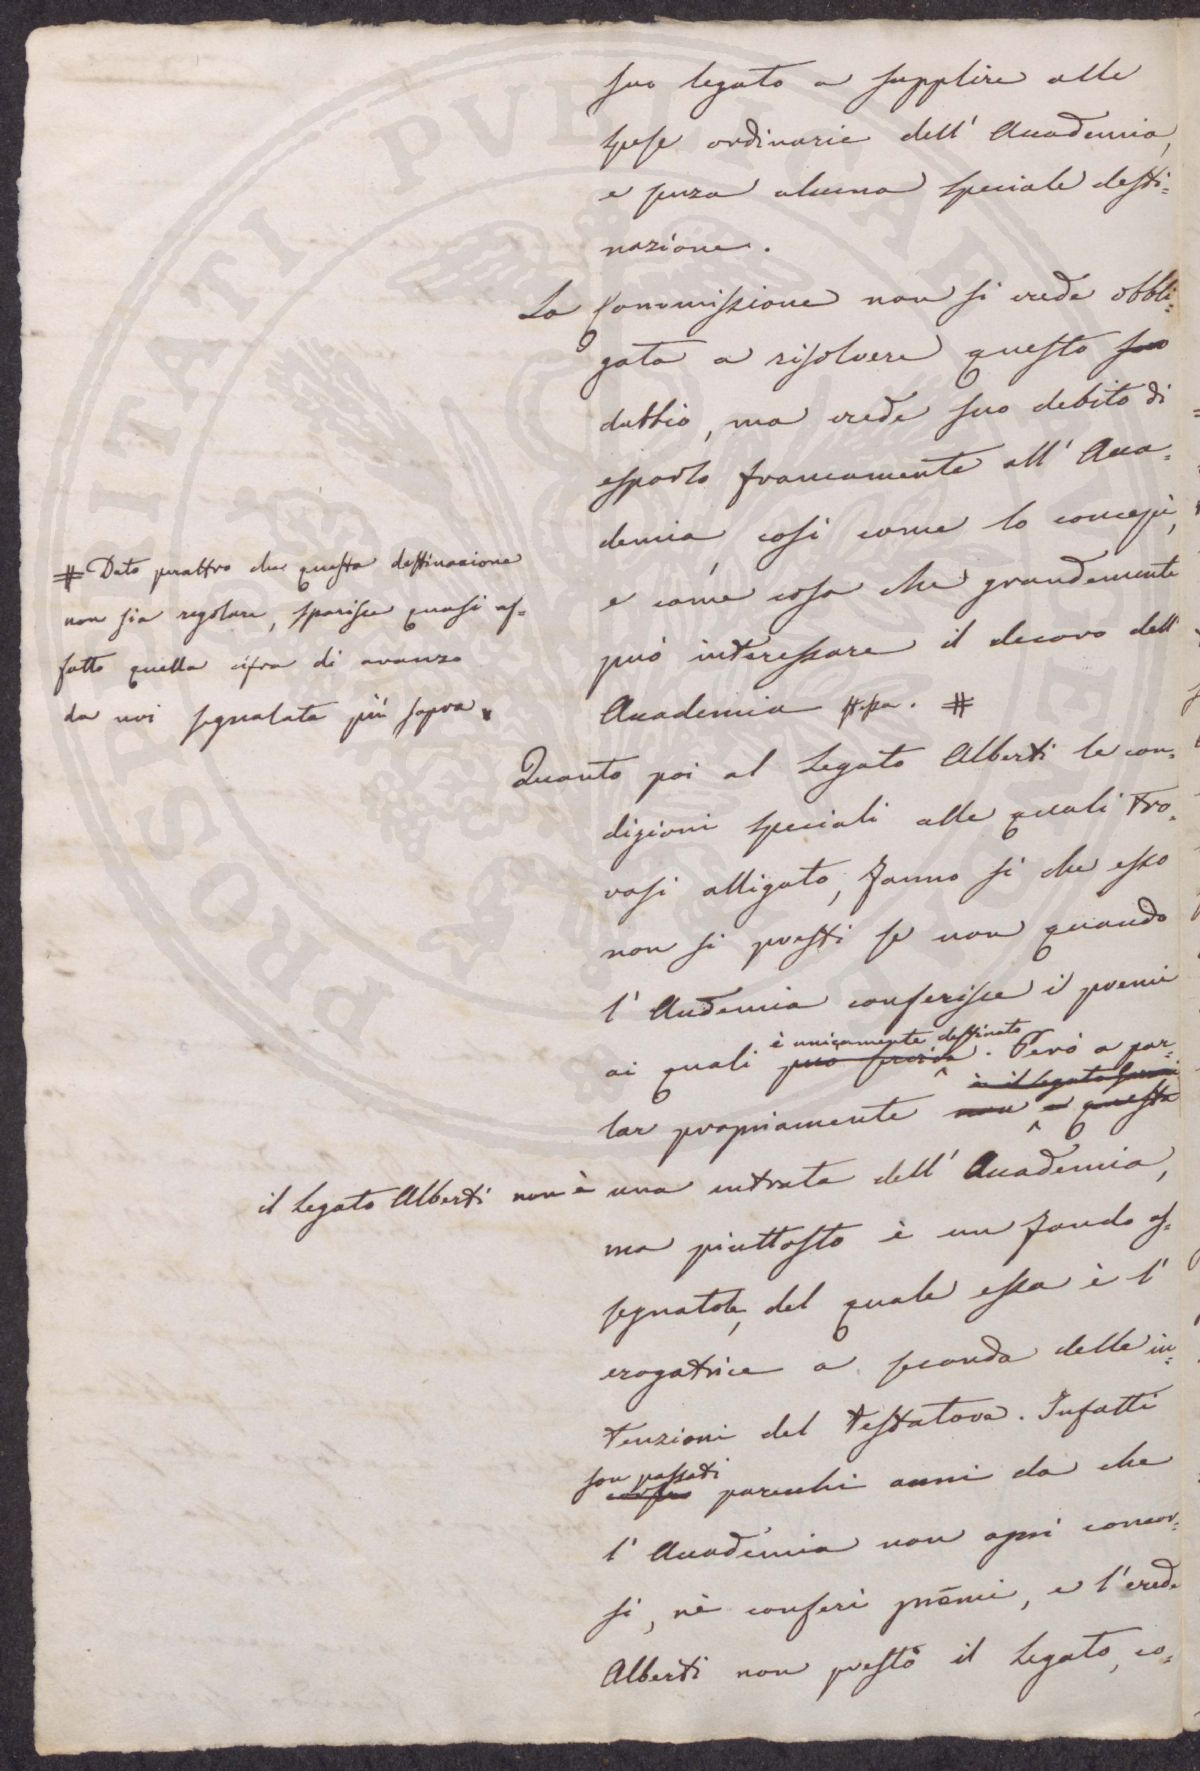 suo legato a supplire alle
spese ordinarie dell' Accademia,
e senza alcuna speciale desti=
nazione.
La Commissione non si crede obbli=
gata a risolvere questo suo
dubbio, ma crede suo debito di
esporlo francamente all' Acca=
demia, così come lo concepì,
e come cosa che grandemente
può interessare il decoro dell'
Accademia stessa. #
# Dato peraltro che questa destinazione
non sia regolare, sparisce quasi af=
fatto quella cifra di avanzo
da noi segnalata più sopra.
Quanto poi al Legato Alberti le con=
dizioni speciali alle quali tro=
vasi alligato, fanno sì che esso
non si presti se non quando
l' Accademia conferisce i premi
è unicamente destinato
ai quali può servire. Però a par=
è il legato
lar propriamente non è questa
il Legato Alberti non è una entrata dell' Accademia,
ma piuttosto è un fondo as=
segnatole, del quale essa è l'
erogatrice a seconda delle in=
tenzioni del testatore. Infatti
son passati
parecchi anni da che
l' Accademia non aprì concor=
si, nè conferì premi, e l'erede
Alberti non prestò il Legato, co=